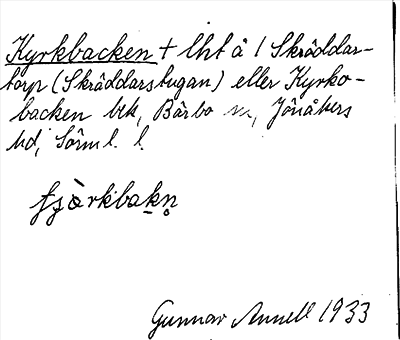 Kyrkbacken + lht å 1 Skräddar-
torp (Skräddarstugan) eller Kyrko-
backen btk, Bärbo sn, Jönåkers
hd, Södml. l.
fjàrkbakn̥
Gunnar Annell 1933